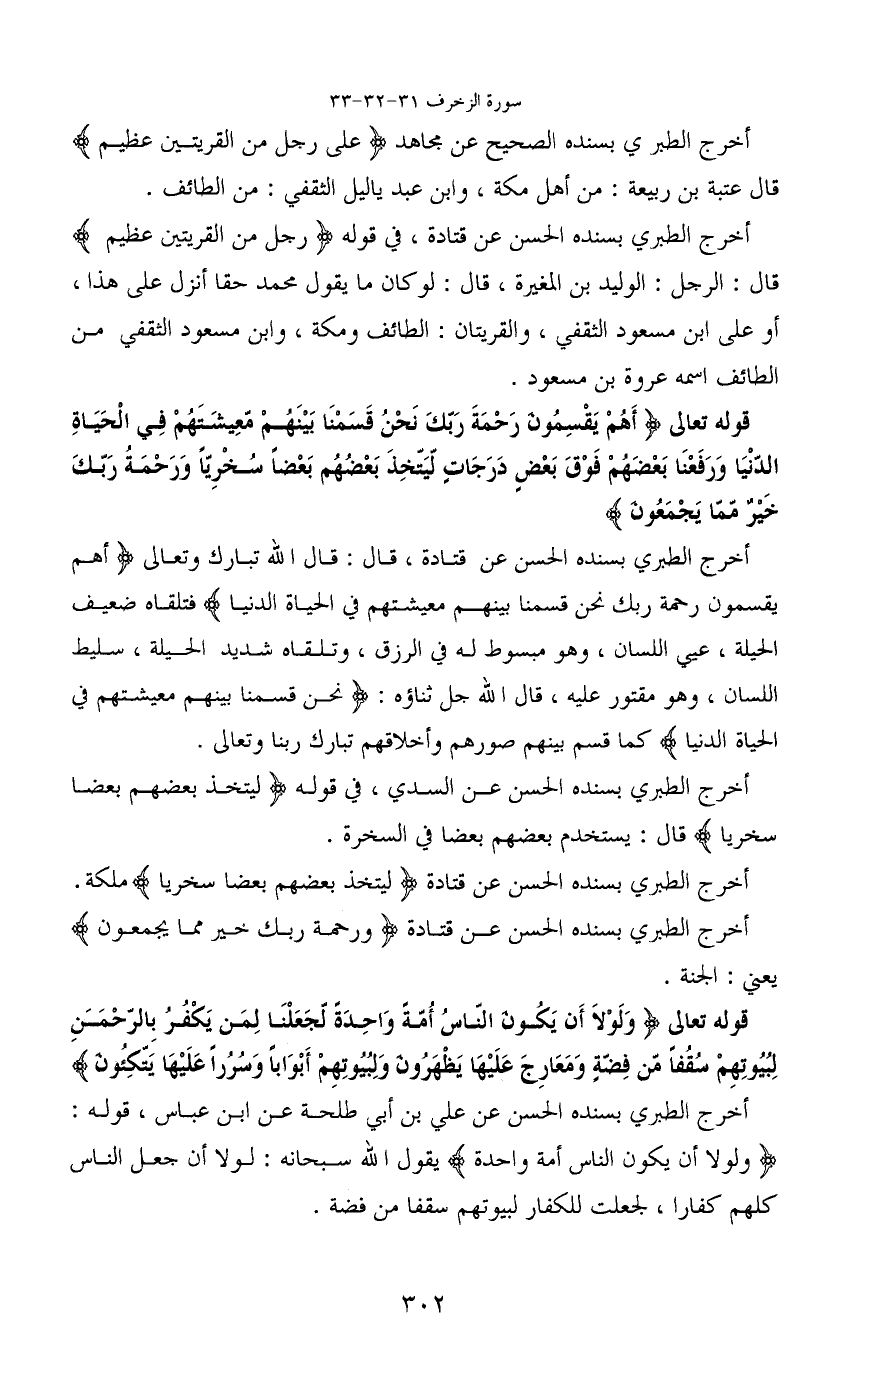 سورة الزخرف ٣١-٣٢-٣٣
أخرج الطبر ي بسنده الصحيح عن مجاهد ﴿ على رجل من القريتـين عظيـم ﴾
قال عتبة بن ربيعة : من أهل مكة ، وابن عبد ياليل الثقفي : من الطائف .
أخرج الطبري بسنده الحسن عن قتادة ، في قوله ﴿ رجل من القريتين عظيم ﴾
قال : الرجل : الوليد بن المغيرة ، قال : لوكان ما يقول محمد حقا أنزل على هذا ،
أو على ابن مسعود الثقفي ، والقريتان : الطائف ومكة ، وابن مسعود الثقفي مـن
الطائف اسمه عروة بن مسعود .
قوله تعالى ﴿ أَهُمْ يَقْسِمُونَ رَحْمَةَ رَبِّكَ نَحْنُ قَسَمْنَا بَيْنَهُـمْ مّعِيشَـتَهُمْ فِـي الْحَيَـاةِ
الدّنْيَا وَرَفَعْنَا بَعْضَهُمْ فَوْقَ بَعْضٍ دَرَجَاتٍ لّيَتّخِذَ بَعْضُهُم بَعْضاً سُـخْرِيّاً وَرَحْمَـةُ رَبّـكَ
خَيْرٌ مّمّا يَجْمَعُونَ ﴾
أخرج الطبري بسنده الحسن عن قتـادة ، قـال : قـال الله تبـارك وتعـالى ﴿ أهـم
يقسمون رحمة ربك نحن قسمنا بينهـم معيشـتهم في الحياة الدنيـا ﴾ فتلقـاه ضعيـف
الحيلة ، عيي اللسان ، وهو مبسوط لـه في الرزق ، وتلـقـاه شـديد الحـيلة ، سـليط
اللسان ، وهو مقتور عليه ، قال الله جل ثناؤه : ﴿ نحـن قسـمنا بينهـم معيشـتهم في
الحياة الدنيا ﴾ كما قسم بينهم صورهم وأخلاقهم تبارك ربنا وتعالى .
أخرج الطبري بسنده الحسن عـن السـدي ، في قولـه ﴿ ليتخـذ بعضهـم بعضـا
سخريا ﴾ قال : يستخدم بعضهم بعضا في السخرة .
أخرج الطبري بسنده الحسن عن قتادة ﴿ ليتخذ بعضهم بعضا سخريا ﴾ ملكة .
أخرج الطبري بسنده الحسن عـن قتـادة ﴿ ورحمـة ربـك خـير ممـا يجمعـون ﴾
يعني : الجنة .
قوله تعالى ﴿ وَلَوْلاَ أَن يَكُـونَ النّاسُ أُمّـةً وَاحِـدَةً لّجَعَلْنَـا لِمَـن يَكْفُـرُ بِالرّحْمَـنِ
لِبُيُوتِهِمْ سُقُفاً مّن فِضّةٍ وَمَعَارِجَ عَلَيْهَا يَظْهَرُونَ وَلِبُيُوتِهِمْ أَبْوَاباً وَسُرُراً عَلَيْهَا يَتّكِئُونَ ﴾
أخرج الطبري بسنده الحسن عن علي بن أبي طلحـة عـن ابـن عباس ، قولـه :
﴿ ولولا أن يكون الناس أمة واحدة ﴾ يقول الله سـبحانه : لـولا أن جعـل النـاس
كلهم كفارا ، لجعلت للكفار لبيوتهم سقفا من فضة .
٣٠٢